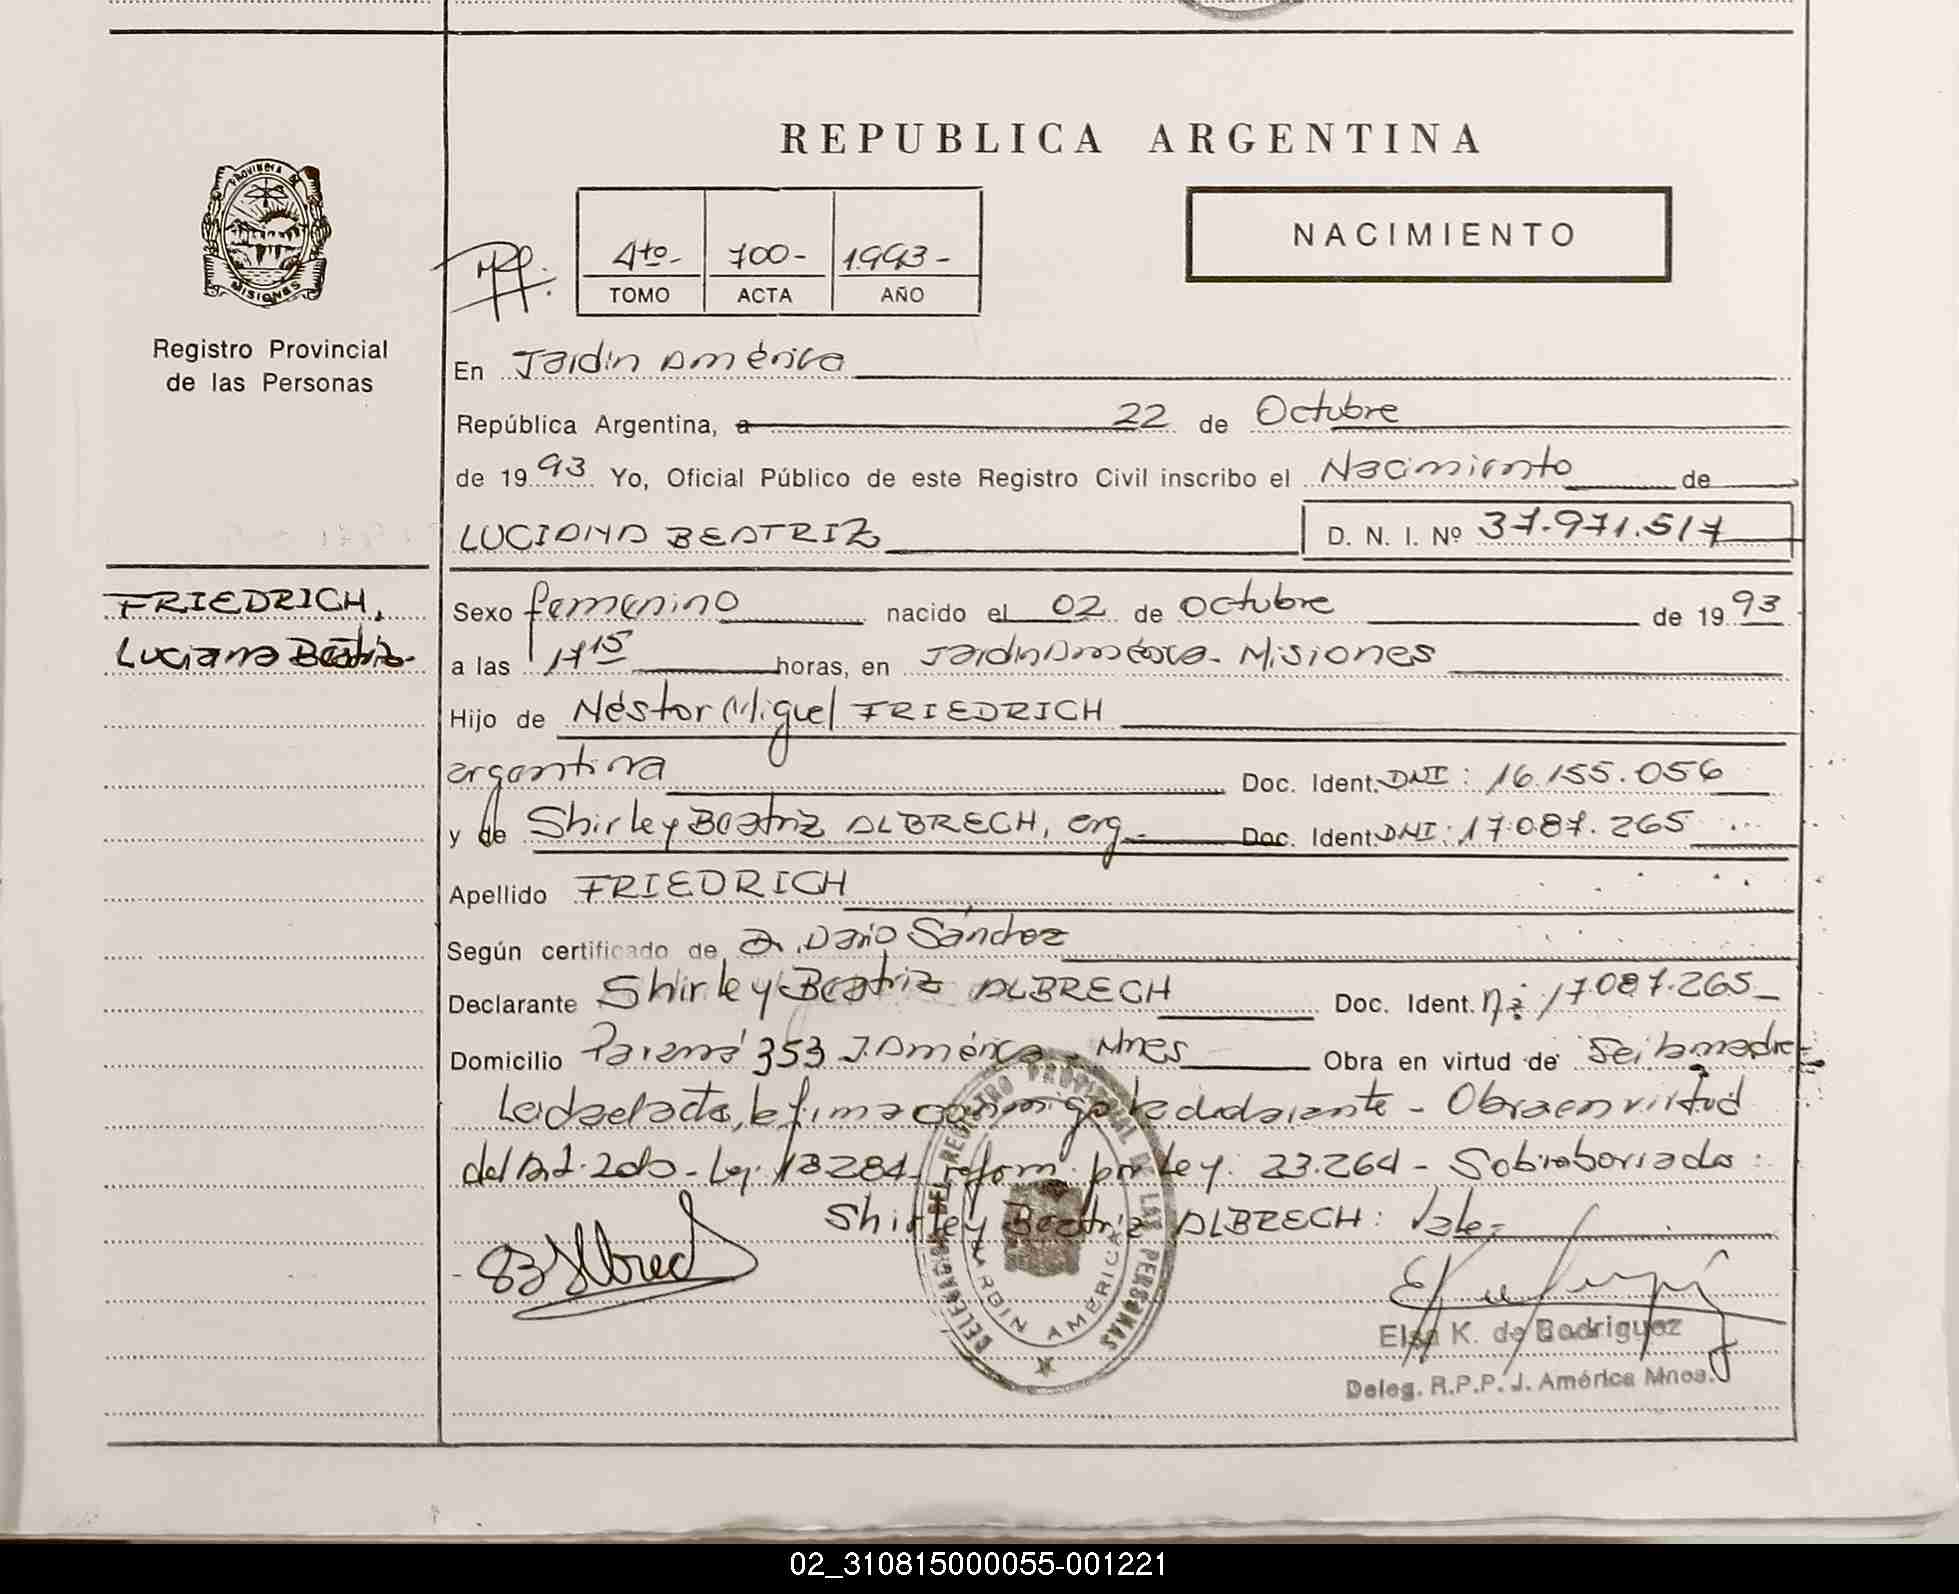 REPUBLICA ARGENTINA
PROVINCIA DE
MISIONES
Registro Provincial
de las Personas
4to.- 700- 1.993-
TOMO ACTA AÑO
NACIMIENTO
En Jardín América
República Argentina, a 22 de Octubre
de 19 93 Yo, Oficial Público de este Registro Civil inscribo el Nacimiento de
LUCIANA BEATRIZ D. N. I. Nº 37.971.517
FRIEDRICH,
Luciana Beatriz.
Sexo femenino nacido el 02 de Octubre de 19 93
a las 17 15 horas, en Jardín América - Misiones
Hijo de Néstor Miguel FRIEDRICH
argentina Doc. Ident. DNI: 16.155.056
y de Shirley Beatriz ALBRECH, arg. Doc. Ident. DNI: 17.087.265
Apellido FRIEDRICH
Según certificado de Dr. Darío Sánchez
Declarante Shirley Beatriz ALBRECH Doc. Ident. nº: 17087.265
Domicilio Paraná 353 J. América - Mnes Obra en virtud de Ser la madre
Leída el acta, la firma conmigo la declarante - Obra en virtud
del Art. 2do - Ley. 18284 reform. por Ley. 23.264 - Sobreborrado:
Shirley Beatriz ALBRECH: Vale-
SBAlbrech
DELEGACION DEL REGISTRO PROVINCIAL DE LAS PERSONAS
JARDIN AMERICA
Elsa K. de Rodriguez
Deleg. R.P.P. J. América Mnes.
02_310815000055-001221